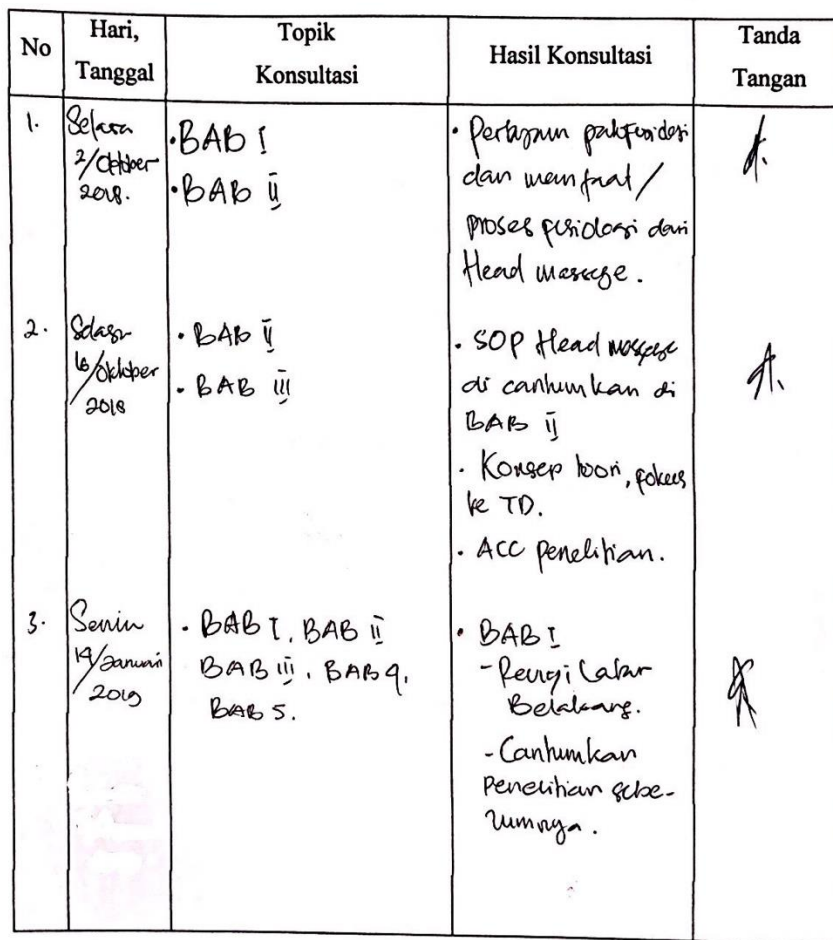 No
Hari,
Tanggal
Topik
Konsultasi
Hasil Konsultasi
Tanda
Tangan
1.
Selasa
2/Oktober
2018.
• BAB I
• BAB II
• Perbajam patofisiologi
dan manfaat /
proses fisiologi dari
Head massage.
2.
Selasa
16/Oktober
2018
• BAB II
• BAB III
• SOP Head massage
di cantumkan di
BAB II
• Konsep teori, fokus
ke TD.
• ACC penelitian.
3.
Senin
14/Januari
2019
• BAB I, BAB II
BAB III, BAB 4,
BAB 5.
• BAB I
- Revisi Latar
Belakang.
- Cantumkan
Penelitian sebe-
lumnya.